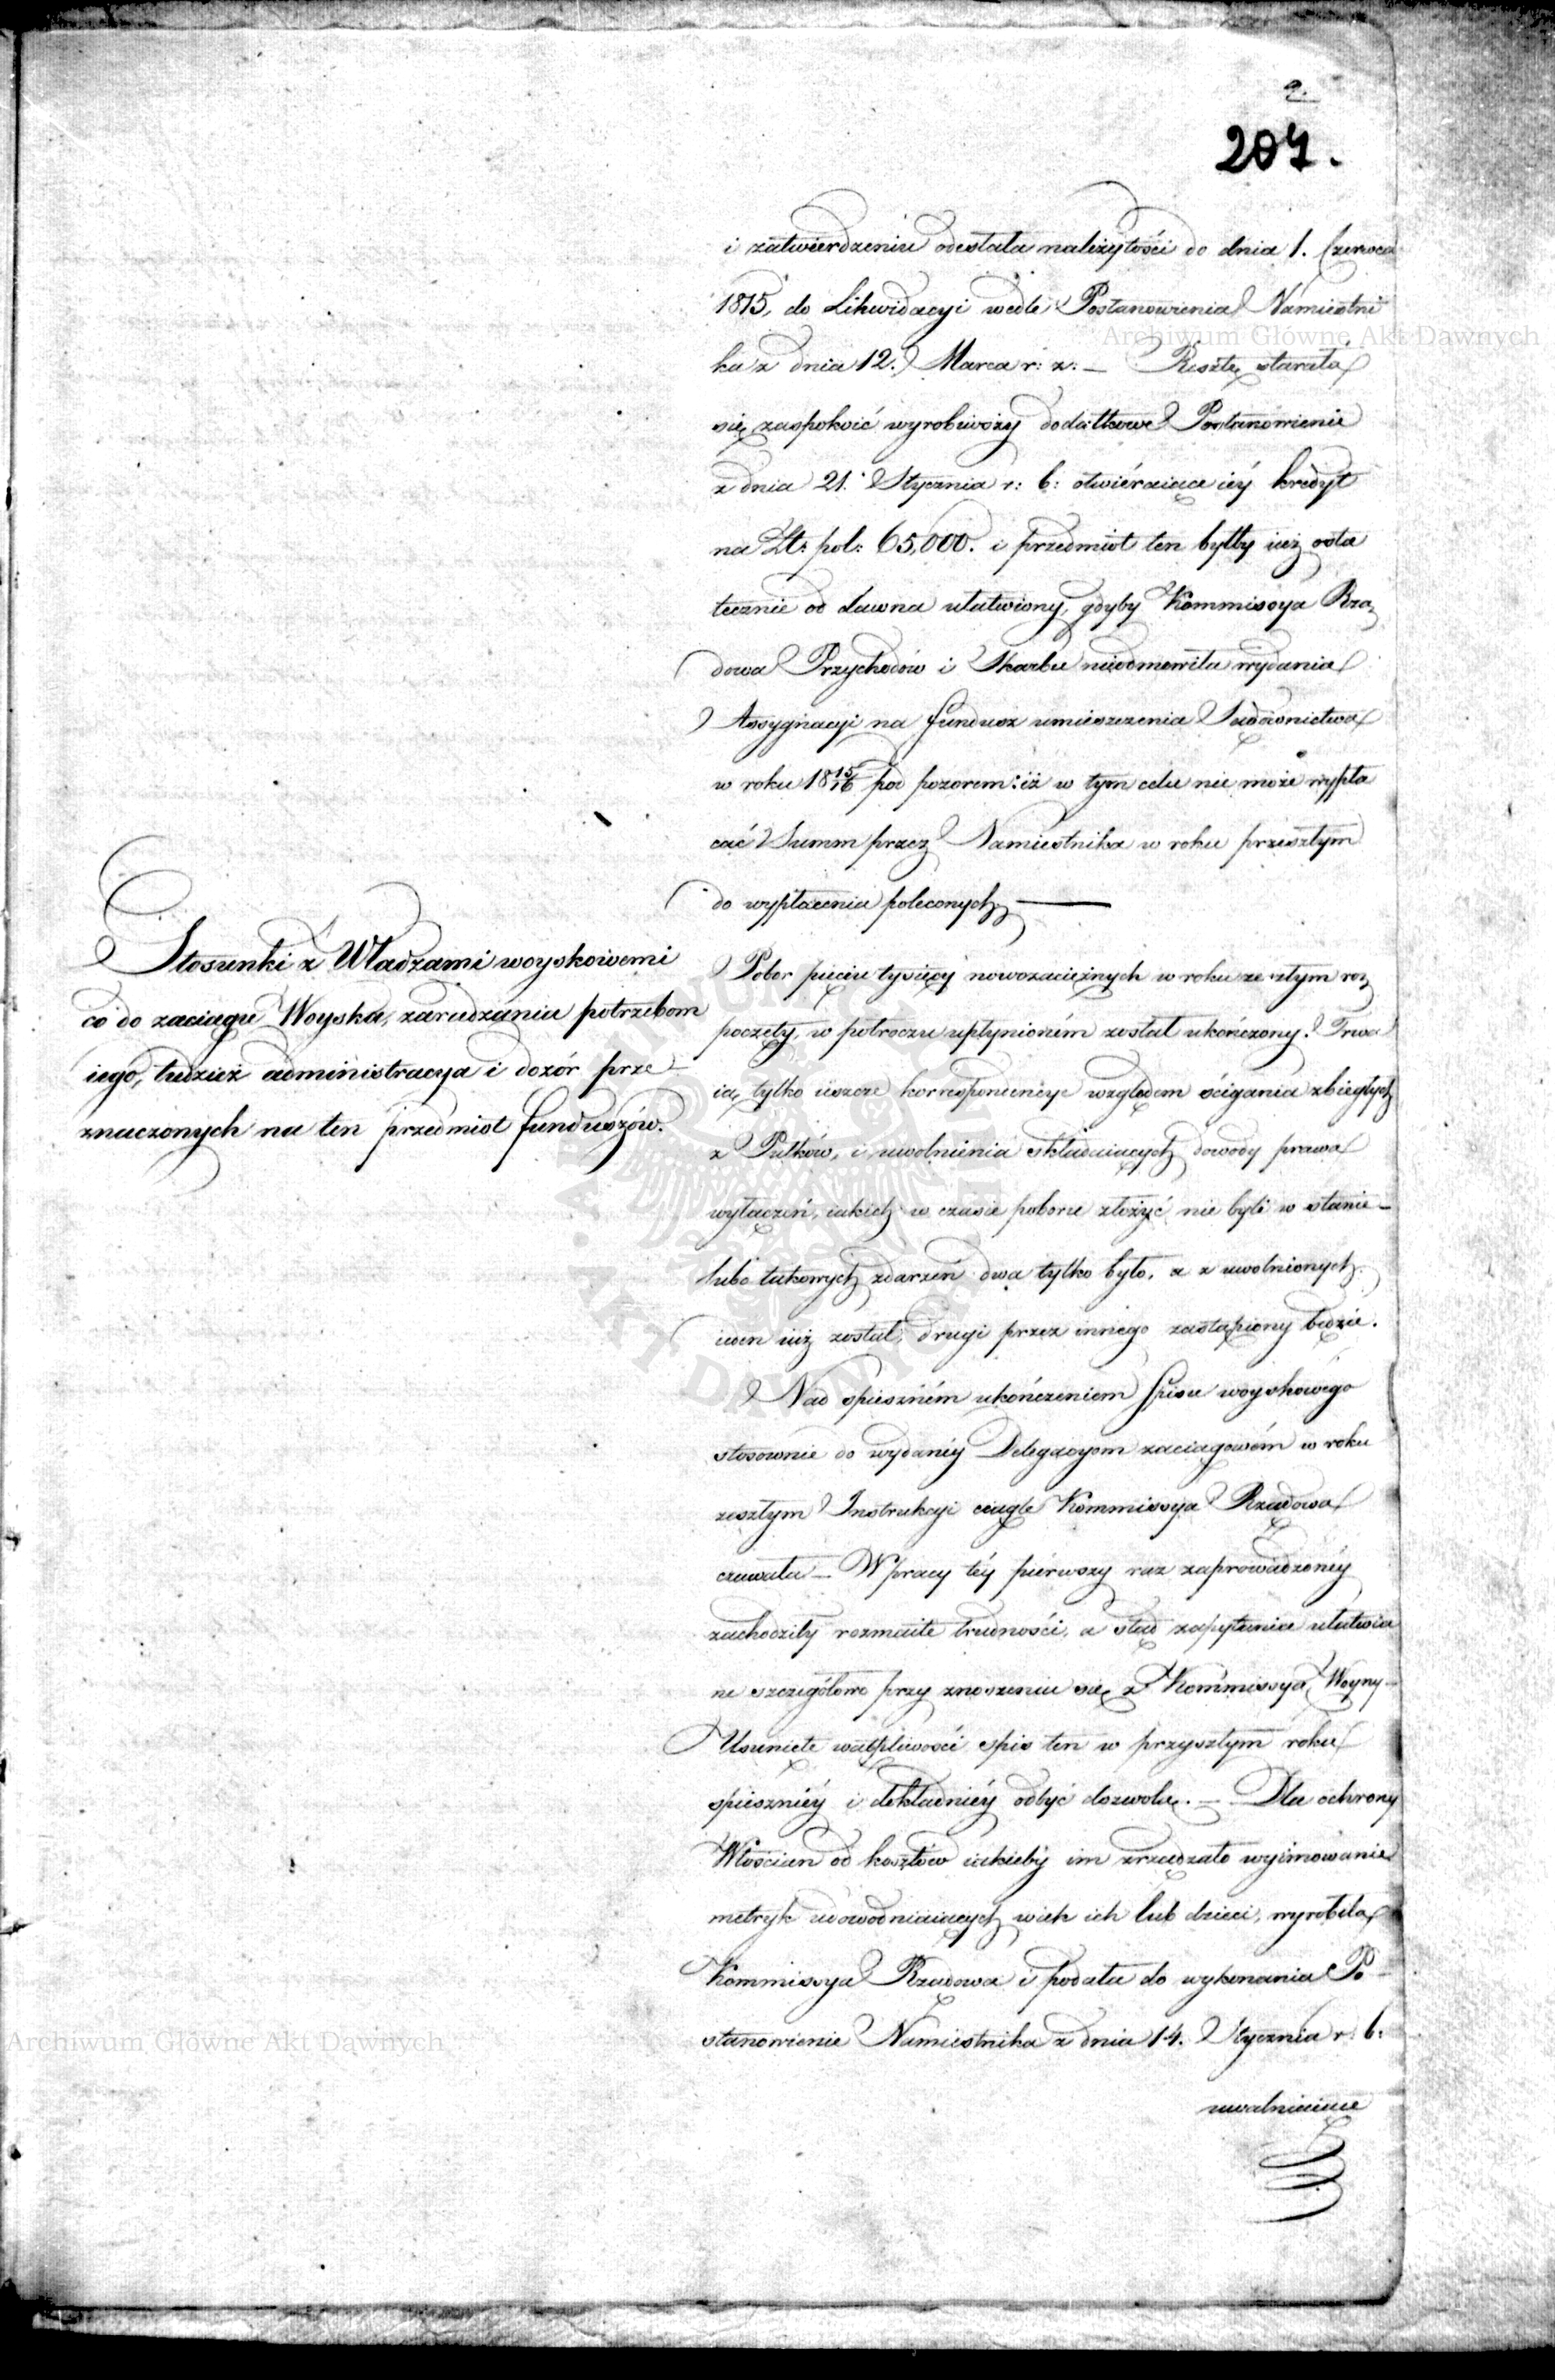 9.
207.
i zatwierdzeniu odesłała należytości do dnia 1. Czerwca
1815, do Likwidacyi wedle Postanowienia Namiestni
ka z dnia 12. Marca r: z: — Resztę starała
się zaspokoić wyrobiwszy dodatkowe Postanowienie
z dnia 21. Stycznia r: b: otwiéraiące iéy kredyt
na Zł: pol: 65,000. i przedmiot ten byłby iuż osta
tecznie od dawna ułatwiony, gdyby Kommissya Rzą
dowa Przychodów i Skarbu nieodmówiła wydania
Assygnacyi na fundusz umieszczenia Sądownictwa
w roku 18 15/16 pod pozorem: iż w tym celu nie może wypła
cać Summ przez Namiestnika w roku przeszłym
do wypłacenia poleconych —
Stosunki z Władzami woyskowemi
co do zaciągu Woyska, zaradzaniu potrzebom
iego, tudzież administracya i dozór prze
znaczonych na ten przedmiot funduszów.
Pobor pięciu tysięcy nowozaciężnych w roku ze szłym roz
poczęty, w półroczu upłynioném został ukończony. Trwa
ią tylko ieszcze korrespondencye względem ścigania zbiegłych
z Pułków, i uwolnienia składaiących dowody prawa
wyłączeń, iakich w czasie poboru złożyć nie byli w stanie —
lubo takowych zdarzeń dwa tylko było, a z uwolnionych
ieden iuż został, drugi przez innego zastąpiony będzie.
Nad spieszném ukończeniem spisu woyskowégo
stosownie do wydanéy Delegacyom zaciągowém w roku
zeszłym Instrukcyi ciągle Kommissya Rządowa
czuwała — W pracy téy piérwszy raz zaprowadzonéy
zachodziły rozmaite trudności, a stąd zapytania ułatwia
ne szczegółowo przy znoszeniu się z Kommissyą Woyny —
Usunięte wątpliwości spis ten w przyszłym roku
spieszniéy i dokładniéy odbyć dozwolą. — Dla ochrony
Włościan od kosztów iakieby im zrządzało wyimowanie
metryk udowodniaiących wiek ich lub dzieci, wyrobiła
Kommissya Rządowa i podała do wykonania Po
stanowienie Namiestnika z dnia 14. Stycznia r: b:
uwalniaiące
Archiwum Główne Akt Dawnych
Archiwum Główne Akt Dawnych